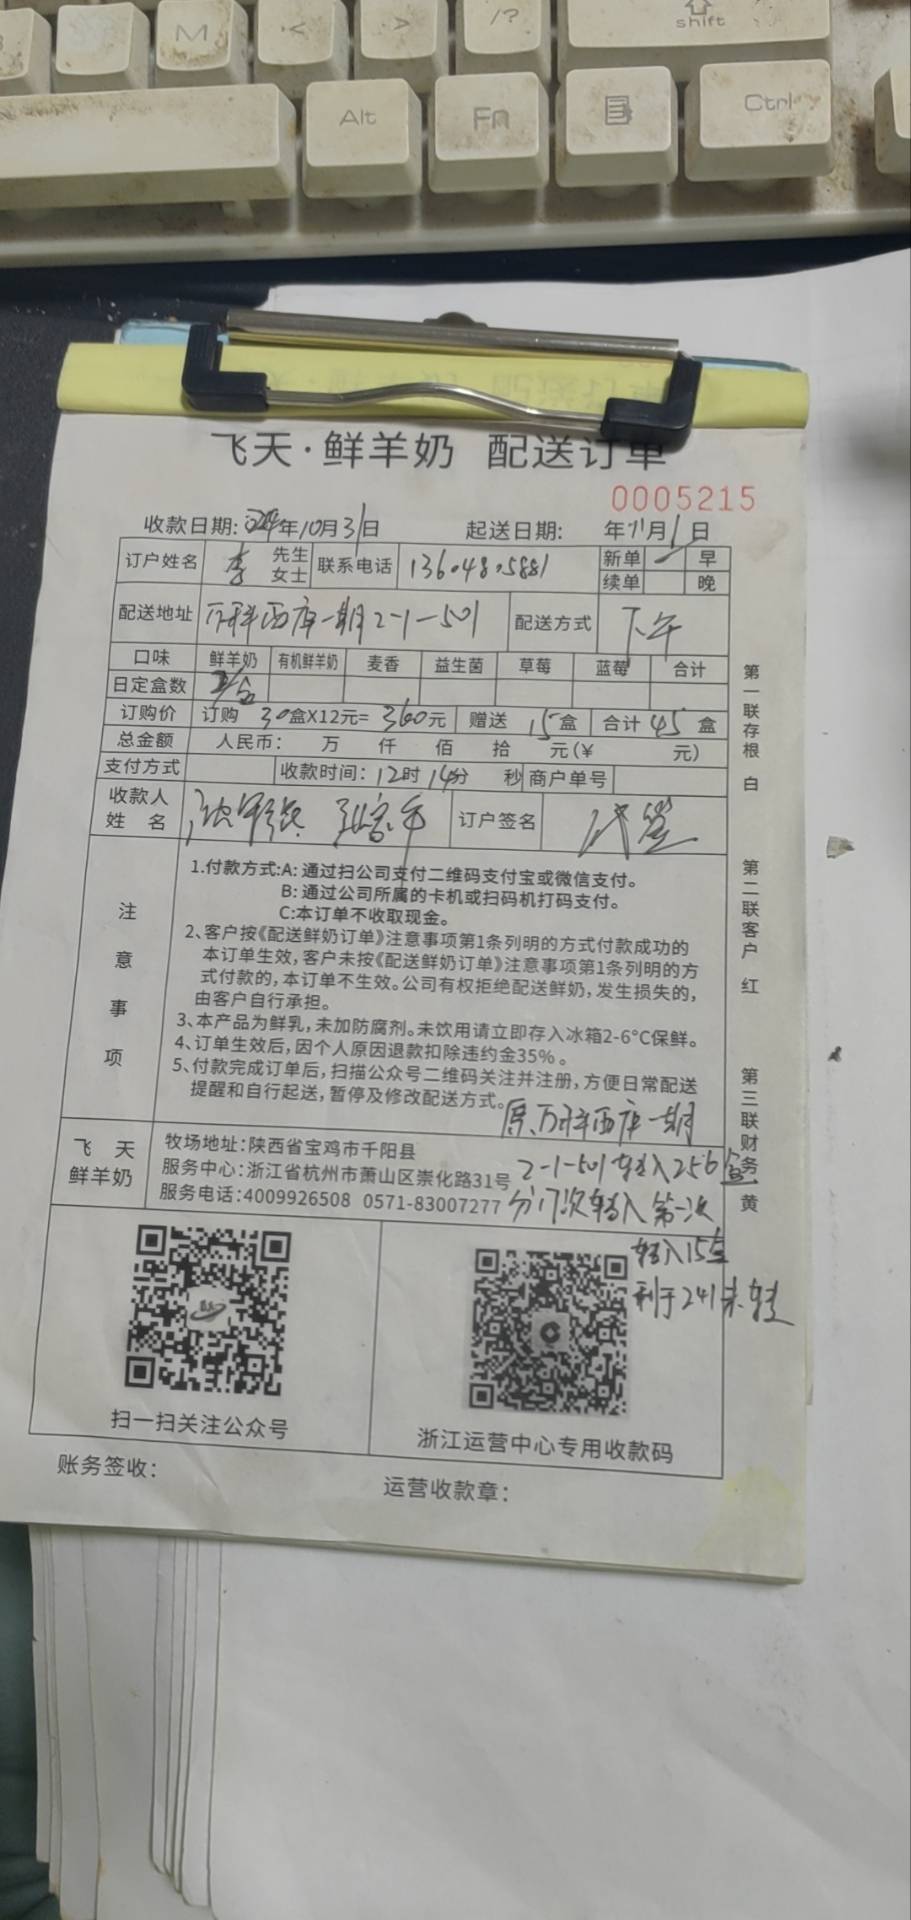 M
<
>
/?
shift
Alt
Fn
Ctrl
飞天·鲜羊奶 配送订单
0005215
收款日期: 2024年10月31日 起送日期: 年11月1日
订户姓名 李 先生 女士 联系电话 13604805881 新单 早
续单 晚
配送地址 万科西庐一期2-1-501 配送方式 下午
口味 鲜羊奶 有机鲜羊奶 麦香 益生菌 草莓 蓝莓 合计
日定盒数
订购价 订购 30盒X12元=360元 赠送 15盒 合计45盒
总金额 人民币: 万 仟 佰 拾 元(¥ 元)
支付方式 收款时间: 12时14分 秒 商户单号
收款人姓名 订户签名 代签
注意事项
1.付款方式:A: 通过扫公司支付二维码支付宝或微信支付。
B: 通过公司所属的卡机或扫码机打码支付。
C:本订单不收取现金。
2、客户按《配送鲜奶订单》注意事项第1条列明的方式付款成功的
本订单生效,客户未按《配送鲜奶订单》注意事项第1条列明的方
式付款的,本订单不生效。公司有权拒绝配送鲜奶,发生损失的,
由客户自行承担。
3、本产品为鲜乳,未加防腐剂。未饮用请立即存入冰箱2-6°C保鲜。
4、订单生效后,因个人原因退款扣除违约金35%。
5、付款完成订单后,扫描公众号二维码关注并注册,方便日常配送
提醒和自行起送,暂停及修改配送方式。
原、万科西庐一期
2-1-501转入256盒
分门次转入 第一次
转入15盒
剩于241未转
飞天鲜羊奶
牧场地址:陕西省宝鸡市千阳县
服务中心:浙江省杭州市萧山区崇化路31号
服务电话:4009926508 0571-83007277
扫一扫关注公众号
浙江运营中心专用收款码
账务签收:
运营收款章:
第一联存根 白
第二联客户 红
第三联财务 黄